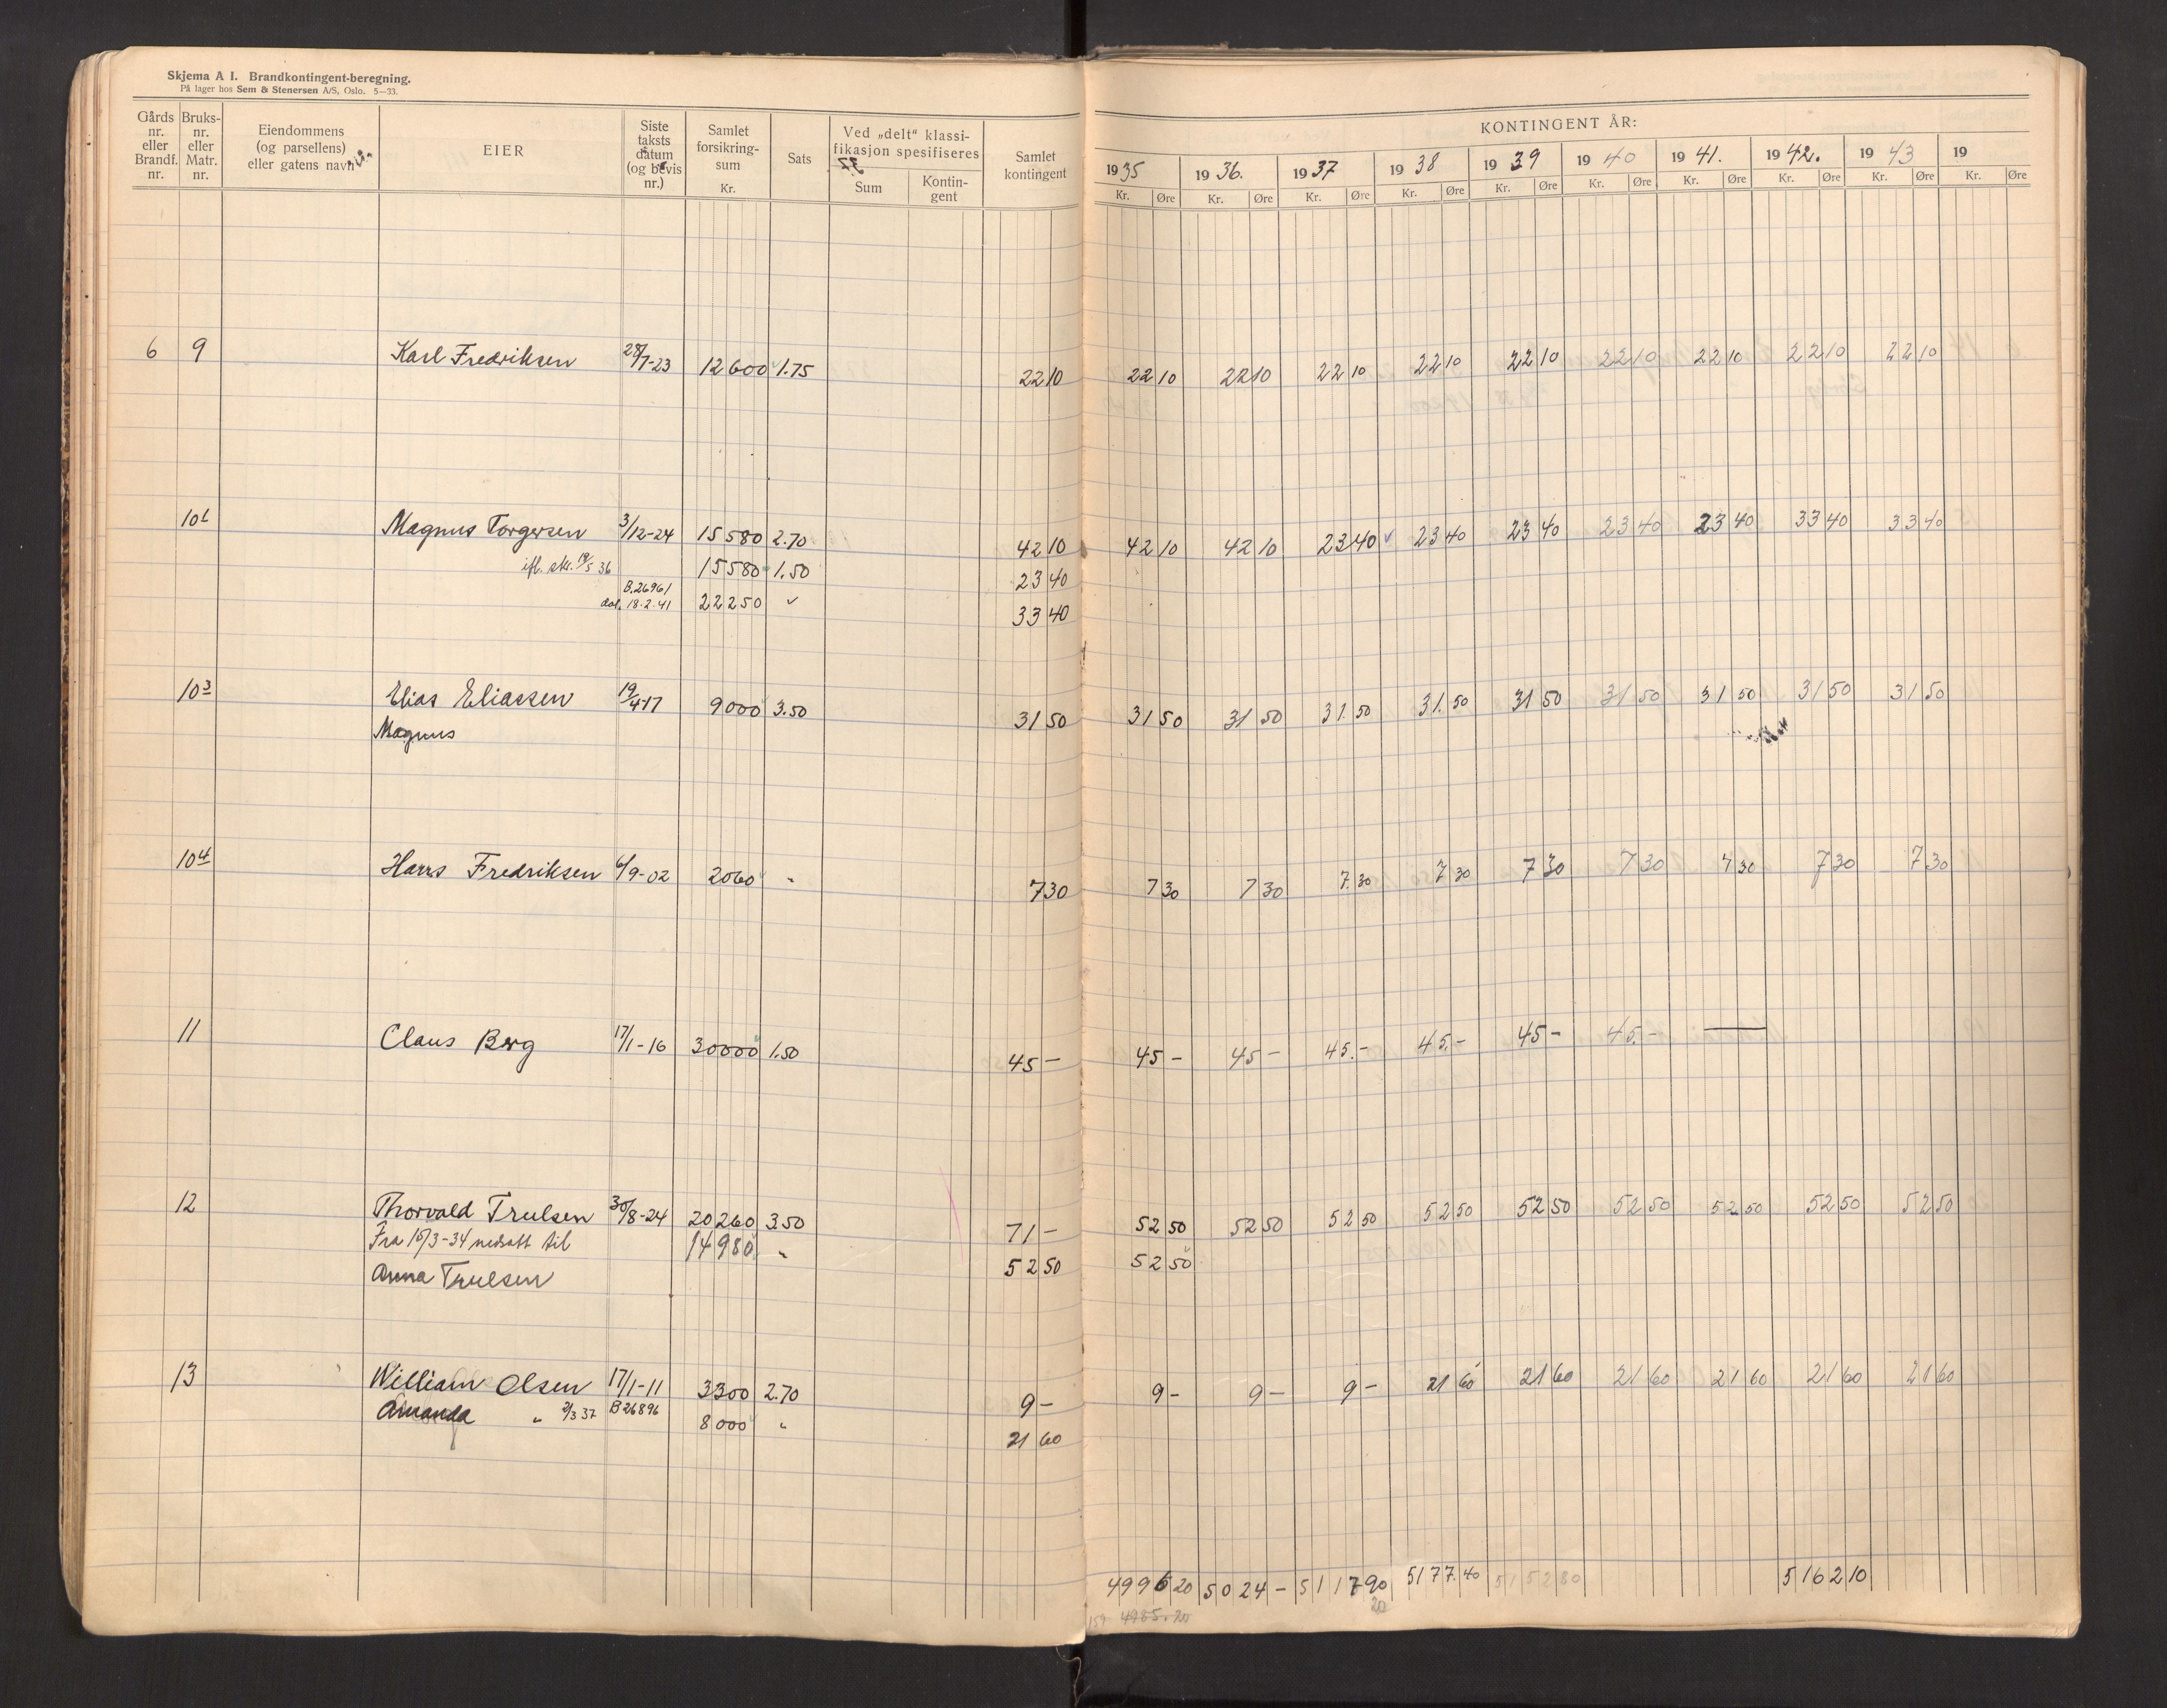 Skjema A I. Brandkontingent-beregning.
På lager hos Sem & Stenersen A/S, Oslo. 5—33.
Gårds nr. eller Brandf. nr.
Bruks- nr. eller Matr. nr.
Eiendommens (og parsellens) eller gatens navn
EIER
Siste taksts datum (og bevis nr.)
Samlet forsikring- sum Kr.
Sats
Ved „delt" klassi- fikasjon spesifiseres
Sum
Kontin- gent
Samlet kontingent
KONTINGENT ÅR:
1935 1936. 1937 1938 1939 1940 1941. 1942. 1943 19
Kr. Øre Kr. Øre Kr. Øre Kr. Øre Kr. Øre Kr. Øre Kr. Øre Kr. Øre Kr. Øre Kr. Øre
6 9 Karl Fredriksen 28/7-23 12600 1.75 22 10 22 10 22 10 22 10 22 10 22 10 22 10 22 10 22 10 22 10
10 Magnus Torgersen 3/12-24 15580 2.70 42 10 42 10 42 10 23 40 23 40 23 40 23 40 23 40 33 40 33 40
ifl. skr. 19/5 36 15580 1.50 23 40
B.26961
18.2.41 22250 33 40
10 3 Elias Eliassen 19/4-17 9000 3.50 31 50 31 50 31 50 31. 50 31. 50 31 50 31 50 31 50 31 50 31 50
Magnus
10 4 Hans Fredriksen 6/9-02 2060 " 7 30 7 30 7 30 7. 30 7 30 7 30 7 30 7 30 7 30 7 30
11 Claus Berg 17/1-16 30000 1.50 45 – 45 – 45 – 45.– 45.– 45 – 45.– —
12 Thorvald Trulsen 30/8-24 20260 3.50 71 – 52 50 52 50 52 50 52 50 52 50 52 50 52 50 52 50 52 50
Fra 15/3-34 nedsatt til 14980 " 52 50 52 50
Anna Trulsen
13 William Olsen 17/1-11 3300 2.70 9 – 9 – 9 – 9 – 21 60 21 60 21 60 21 60 21 60 21 60
Amanda " 2/3 37 B 26896 8000 " 21 60
4996 20 5024 – 5117 90 5177.40 5152 80 5162 10
20
159 4985.20